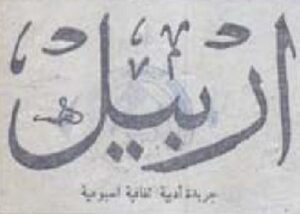 اربيل
جريدة أدبية ثقافية اسبوعية